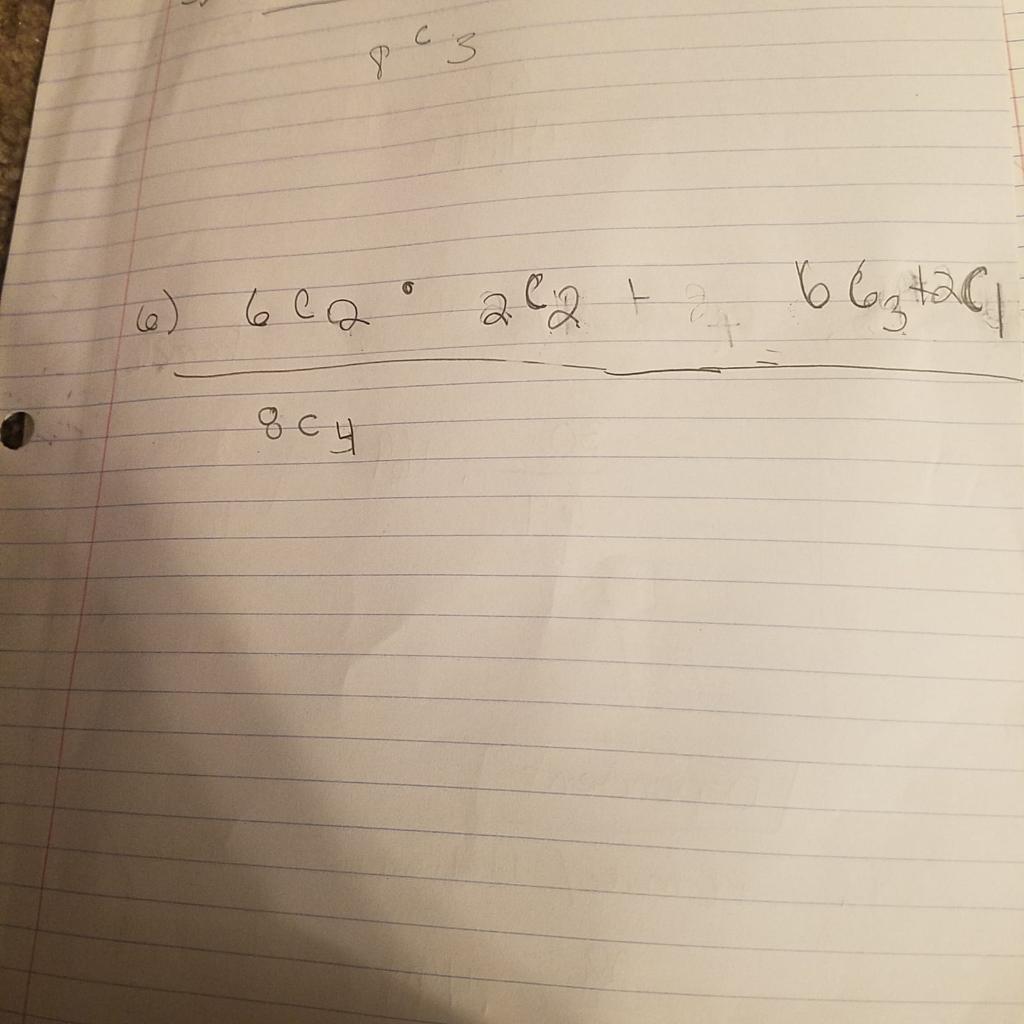 8 C 3
6) 6 C 2 • 2 C 2 + 6 C 3 + 2 C 1
=
8 C 4